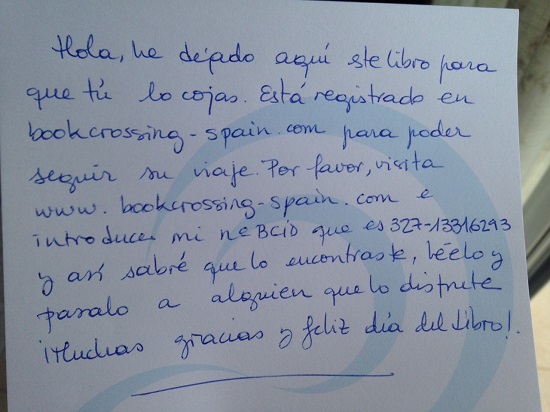 Hola, he dejado aquí ste libro para
que tú lo cojas. Está registrado en
bookcrossing-spain.com para poder
seguir su viaje. Por favor, visita
www.bookcrossing-spain.com e
introduce mi nº BCID que es 327-13316293
y así sabré que lo encontraste, léelo y
pasalo a alguien que lo disfrute
¡Muchas gracias y feliz día del libro!.